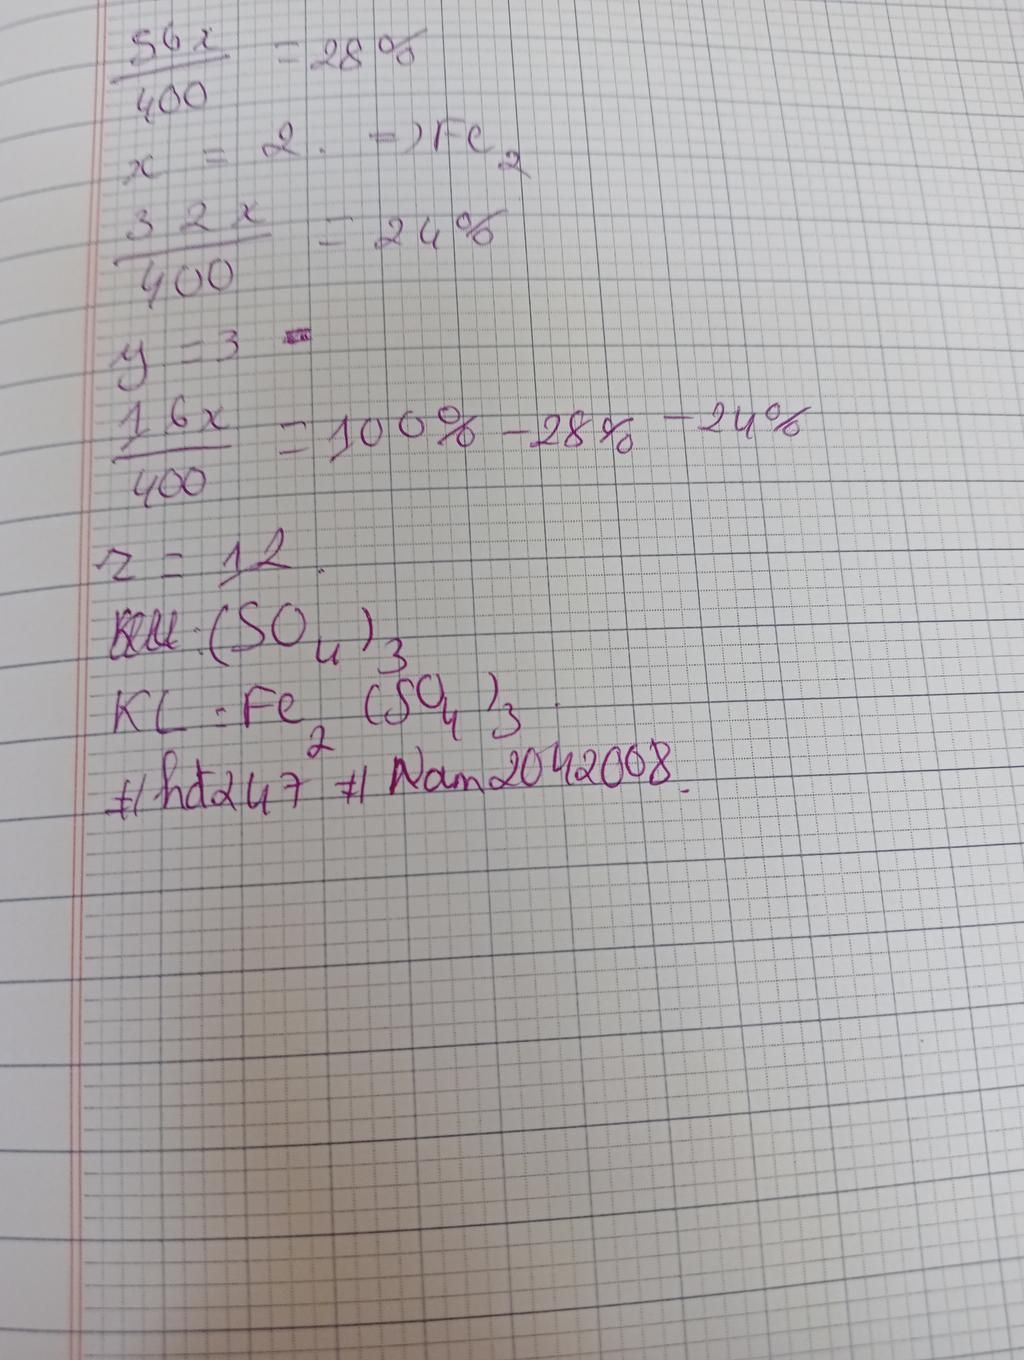 56x/400 = 28%
x = 2. => Fe2
32x/400 = 24%
y = 3
16x/400 = 100% - 28% - 24%
z = 12.
(SO4)3
KL: Fe2(SO4)3.
#hdt247 #Nam2042008.